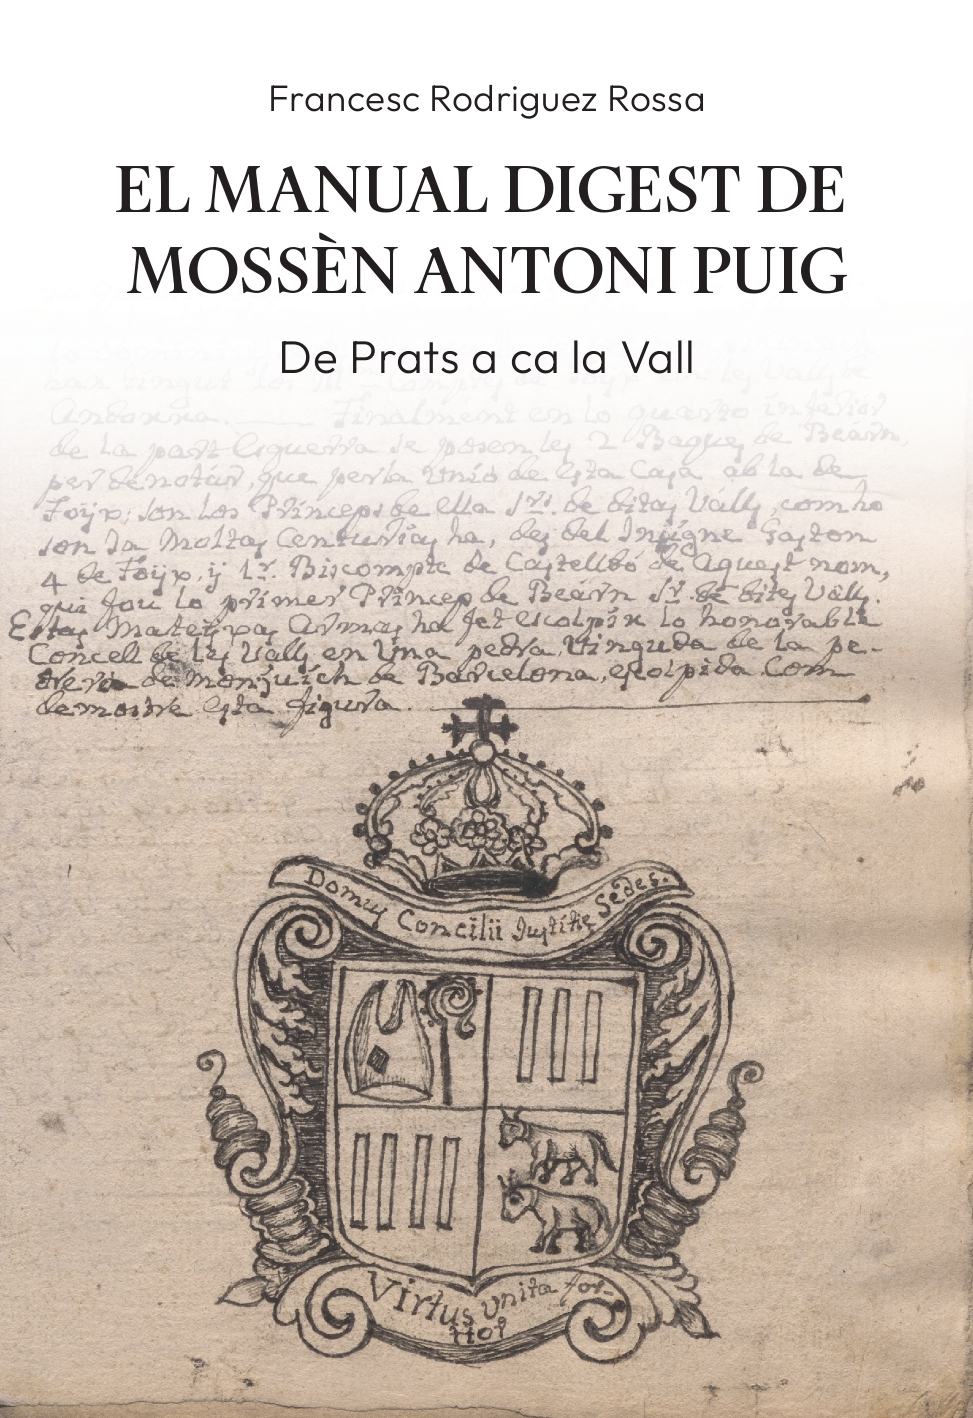 Francesc Rodriguez Rossa
EL MANUAL DIGEST DE
MOSSÈN ANTONI PUIG
De Prats a ca la Vall
han tingut los Ill Comptes de Foix en les Valls de
Andorra. Finalment en lo quarto inferior
de la part Esquerra se posen les 2 Baques de Bearn,
per denotar, que per la Unió de esta Casa ab la de
Foix; son los Princeps de ella Srs. de ditas Valls, com ho
son ja moltas Centurias ha, des del Insigne Gaston
4 de Foix, ÿ 1r. Biscompte de Castellbó de aquest nom,
qui fou lo primer Princep de Bearn Sr. de dites Valls.
Estas mateixas Armas ha fet escolpir lo honorable
Concell de les Valls en Una pedra, tinguda de la pe-
drera de monjuich de Barcelona, escolpida Com
demostre esta figura.
Domus Concilii Justitie Sedes.
Virtus Unita for-
tior